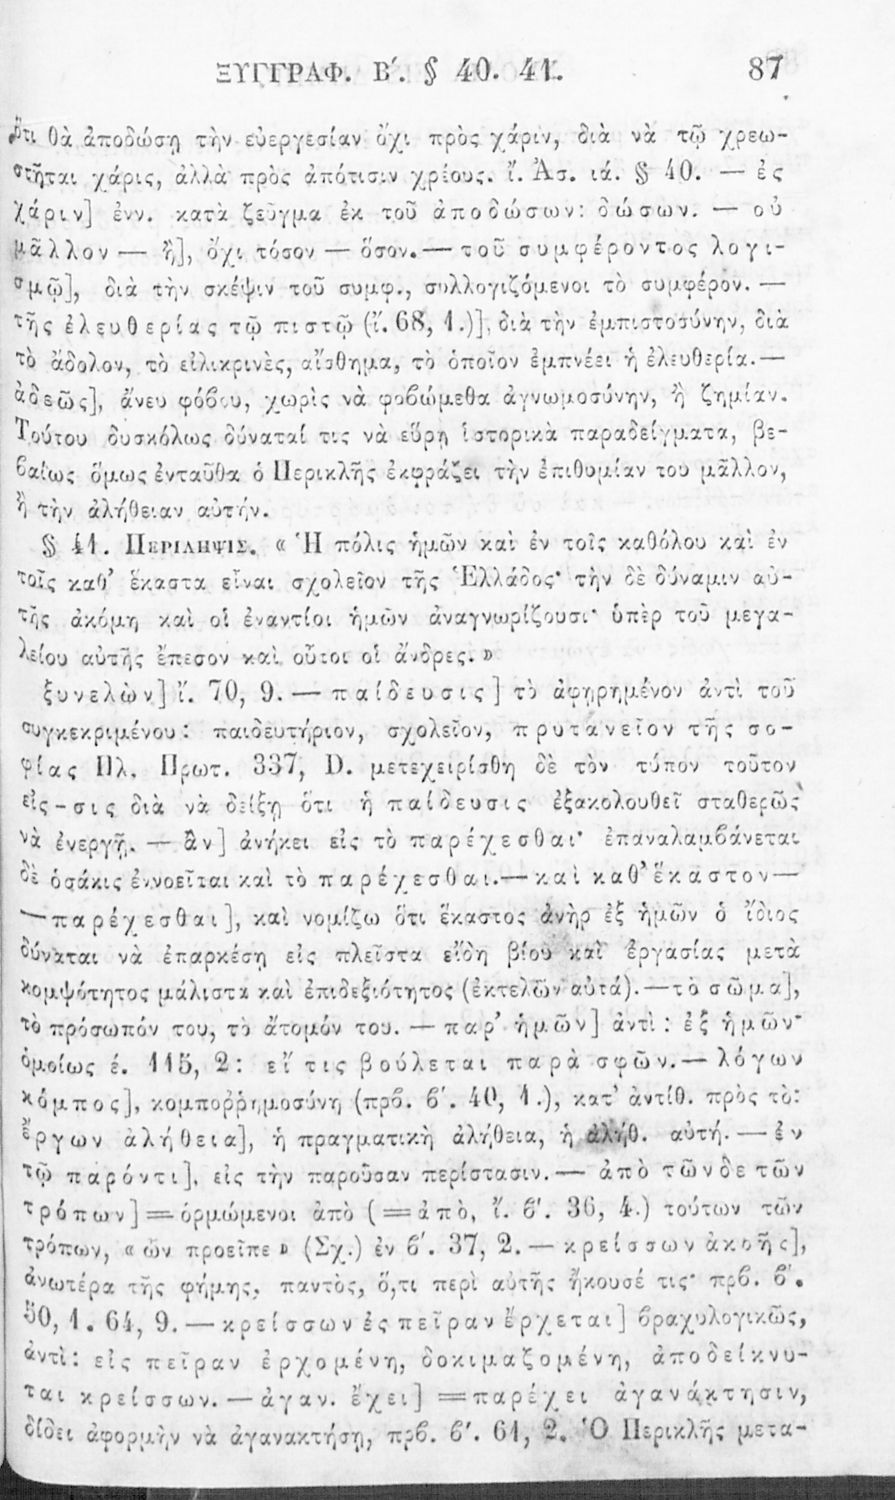 ΞΥΓΓΡΑΦ. Β′. § 40. 41. 87
ὅτι θὰ ἀποδώσῃ τὴν εὐεργεσίαν ὄχι πρὸς χάριν, διὰ νὰ τῷ χρεω-
στῆται χάρις, ἀλλὰ πρὸς ἀπότισιν χρέους. ἴ. Ἀσ. ιά. § 40. — ἐς
χάριν] ἐνν. κατὰ ζεῦγμα ἐκ τοῦ ἀποδώσων: δώσων. — οὐ
μᾶλλον — ἢ], ὄχι τόσον — ὅσον. — τοῦ συμφέροντος λογι-
σμῷ], διὰ τὴν σκέψιν τοῦ συμφ., συλλογιζόμενοι τὸ συμφέρον. —
τῆς ἐλευθερίας τῷ πιστῷ (ἴ. 68, 1.)], διὰ τὴν ἐμπιστοσύνην, διὰ
τὸ ἄδολον, τὸ εἰλικρινὲς, αἴσθημα, τὸ ὁποῖον ἐμπνέει ἡ ἐλευθερία. —
ἀδεῶς], ἄνευ φόβου, χωρὶς νὰ φοβώμεθα ἀγνωμοσύνην, ἢ ζημίαν.
Τούτου δυσκόλως δύναταί τις νὰ εὕρῃ ἱστορικὰ παραδείγματα, βε-
βαίως ὅμως ἐνταῦθα ὁ Περικλῆς ἐκφράζει τὴν ἐπιθυμίαν του μᾶλλον,
ἢ τὴν ἀλήθειαν αὐτήν.
§ 41. ΠΕΡΙΛΗΨΙΣ. « Ἡ πόλις ἡμῶν καὶ ἐν τοῖς καθόλου καὶ ἐν
τοῖς καθ’ ἕκαστα εἶναι σχολεῖον τῆς Ἑλλάδος· τὴν δὲ δύναμιν αὐ-
τῆς ἀκόμη καὶ οἱ ἐναντίοι ἡμῶν ἀναγνωρίζουσι· ὑπὲρ τοῦ μεγα-
λείου αὐτῆς ἔπεσον καὶ οὗτοι οἱ ἄνδρες. »
ξυνελὼν] ἴ. 70, 9. — παίδευσις] τὸ ἀφῃρημένον ἀντὶ τοῦ
συγκεκριμένου: παιδευτήριον, σχολεῖον, πρυτανεῖον τῆς σο-
φίας Πλ. Πρωτ. 337, D. μετεχειρίσθη δὲ τὸν τύπον τοῦτον
εἰς -σις διὰ νὰ δείξῃ ὅτι ἡ παίδευσις ἐξακολουθεῖ σταθερῶς
νὰ ἐνεργῇ. — ἂν] ἀνήκει εἰς τὸ παρέχεσθαι· ἐπαναλαμβάνεται
δὲ ὁσάκις ἐννοεῖται καὶ τὸ παρέχεσθαι. — καὶ καθ’ ἕκαστον —
— παρέχεσθαι], καὶ νομίζω ὅτι ἕκαστος ἀνὴρ ἐξ ἡμῶν ὁ ἴδιος
δύναται νὰ ἐπαρκέσῃ εἰς πλεῖστα εἴδη βίου καὶ ἐργασίας μετὰ
κομψότητος μάλιστα καὶ ἐπιδεξιότητος (ἐκτελῶν αὐτά). — τὸ σῶμα],
τὸ πρόσωπόν του, τὸ ἄτομόν του. — παρ’ ἡμῶν] ἀντὶ: ἐξ ἡμῶν·
ὁμοίως έ. 115, 2: εἴ τις βούλεται παρὰ σφῶν. — λόγων
κόμπος], κομποῤῥημοσύνη (πρβ. β′. 40, 1.), κατ’ ἀντίθ. πρὸς τὸ:
ἔργων ἀλήθεια], ἡ πραγματικὴ ἀλήθεια, ἡ ἀλήθ. αὐτή. — ἐν
τῷ παρόντι], εἰς τὴν παροῦσαν περίστασιν. — ἀπὸ τῶνδε τῶν
τρόπων] = ὁρμώμενοι ἀπὸ (= ἀπὸ, ἴ. β′. 36, 4.) τούτων τῶν
τρόπων, « ὧν προεῖπε » (Σχ.) ἐν β′. 37, 2. — κρείσσων ἀκοῆς],
ἀνωτέρα τῆς φήμης, παντὸς, ὅ,τι περὶ αὐτῆς ἤκουσέ τις· πρβ. β′.
50, 1. 64, 9. — κρείσσων ἐς πεῖραν ἔρχεται] βραχυλογικῶς,
ἀντὶ: εἰς πεῖραν ἐρχομένη, δοκιμαζομένη, ἀποδείκνυ-
ται κρείσσων. — ἀγαν. ἔχει] = παρέχει ἀγανάκτησιν,
δίδει ἀφορμὴν νὰ ἀγανακτήσῃ, πρβ. β′. 61, 2. Ὁ Περικλῆς μετα-